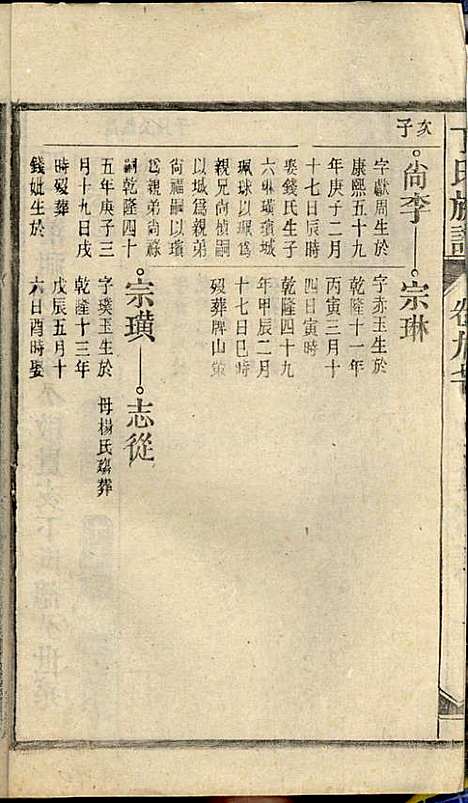 丁氏族譜
卷九
次子
尚李
宗琳
字獻周生於
康熙五十九
年庚子二月
十七日辰時
娶錢氏生子
六琳璜璸城
珮球以珮爲
親兄尚楨嗣
以城爲親弟
尚福嗣以璸
爲親弟尚祿
嗣乾隆四十
五年庚子三
月十九日戌
時歿葬
錢妣生於
字赤玉生於
乾隆十一年
丙寅三月十
四日寅時
乾隆四十九
年甲辰二月
十七日巳時
歿葬牌山策
宗璜
志從
字璞玉生於
乾隆十三年
戊辰五月十
六日酉時娶
母楊氏歿葬